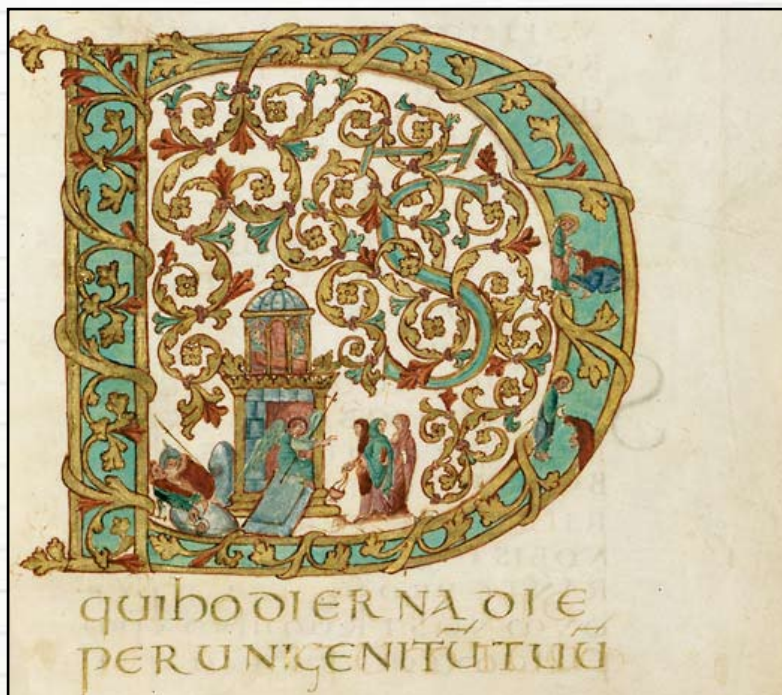 D̅S
quihodIERNA DIE
PERUNIGENITŪTUŪ